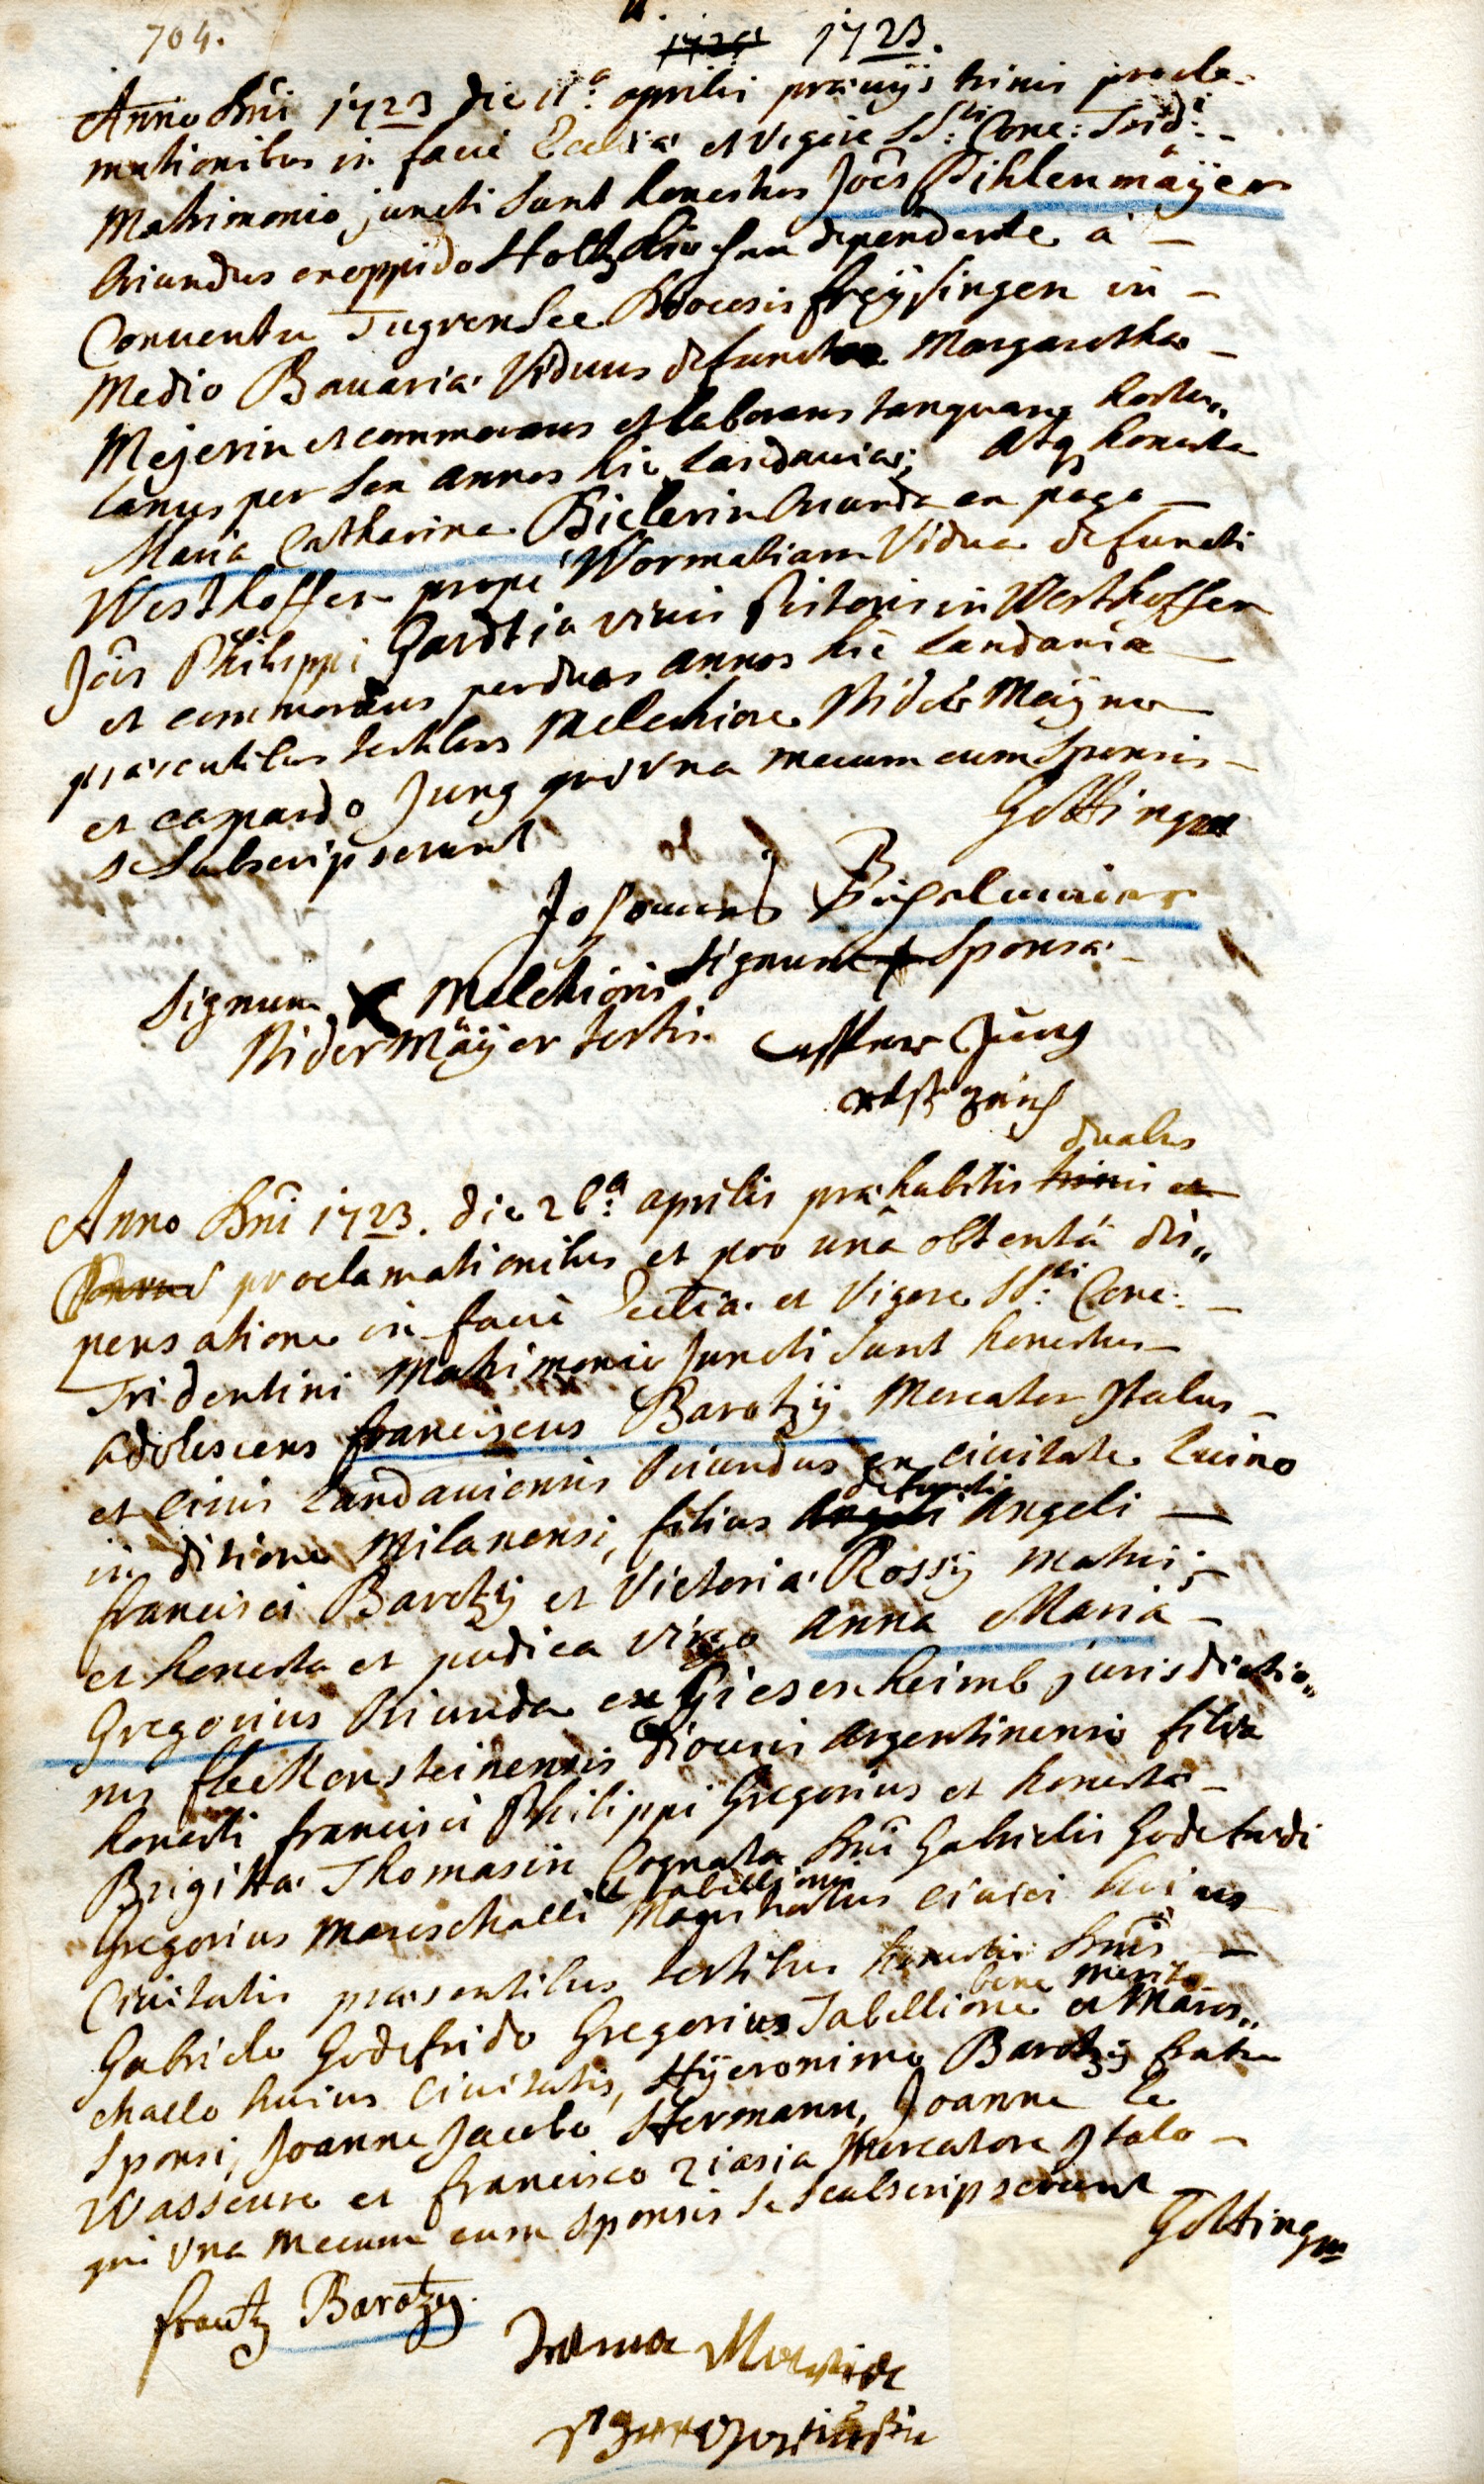 704.
1723.
Anno Dni 1723 die 11.a aprilis præviis trinis procla-
mationibus in facie Ecclia et vigore SS.ti Conc: Trid.i -
Matrimonio juncti sunt honestus Joes Pihlenmäÿer
Oriundus ex oppido Holtzkirchen dependente à -
Conventu Tegrensee Diocesis freÿsingen in -
Medio Bavaria Viduus defunctæ Margaretha -
Mejerin et commorans et laborans tanquam hortu„
lanus per sex annos hic Landavia; atq honesta
Maria Catharina Bielerin Oriunda ex pago -
Westhoffen prope Wormatiam Vidua defuncti
Jois Philippi Hardt in vivis Pistoris in Westhoffen
et commorans per duos annos hic Landavia -
præsentibus testibus Melchiore Nider Maÿner
et casparo Jung qui vna mecum cum Sponsis -
se subscripserunt
Gottingen
Johannes
Signum + Sponsa
Signum X Melchioris
Nidermäÿer testis
Casper Jung
duabus
Anno Dni 1723. die 26.a aprilis præhabitis trinis et
proclamationibus et pro unâ obtentâ dis„
pensatione in facie Eccliæ et Vigore SS.ti Conc: -
Tridentini Matrimonio Juncti sunt honestus -
adolescens franciscus Barotzÿ Mercator Italus -
et civis Landaviensis Oriundus ex civitate Luino
defuncti
in ditione Milanensi, filius Angeli Angeli -
francisci Barotzÿ et Victoria Rossÿ Matris; -
et honesta et pudica virgo anna Maria -
Gregorius Oriunda ex Giesenheimb jurisdictio„
nis fleckensteinensis diocesis argentinensis filia
honesti francisci Philippi Gregorius et honesta -
Brigitta Thomasin Cognata Dni Gabrielis Godefridi
et tabellionis
Gregorius Mareschalli Magistratus civici huius
Civitatis præsentibus testibus honestis Dnis -
bene merito
Gabriele Godefrido Gregorius Tabellione et Mares„
challo huius Civitatis, Hÿeronimo Barotzÿ fratre
Sponsi, Joanne Jacobo Hermann, Joanne le
Wasseure et francisco Ziasia Mercatore Italo -
qui vna Mecum cum Sponsis se subscripserunt
Gottingen
frantz Barotzy.